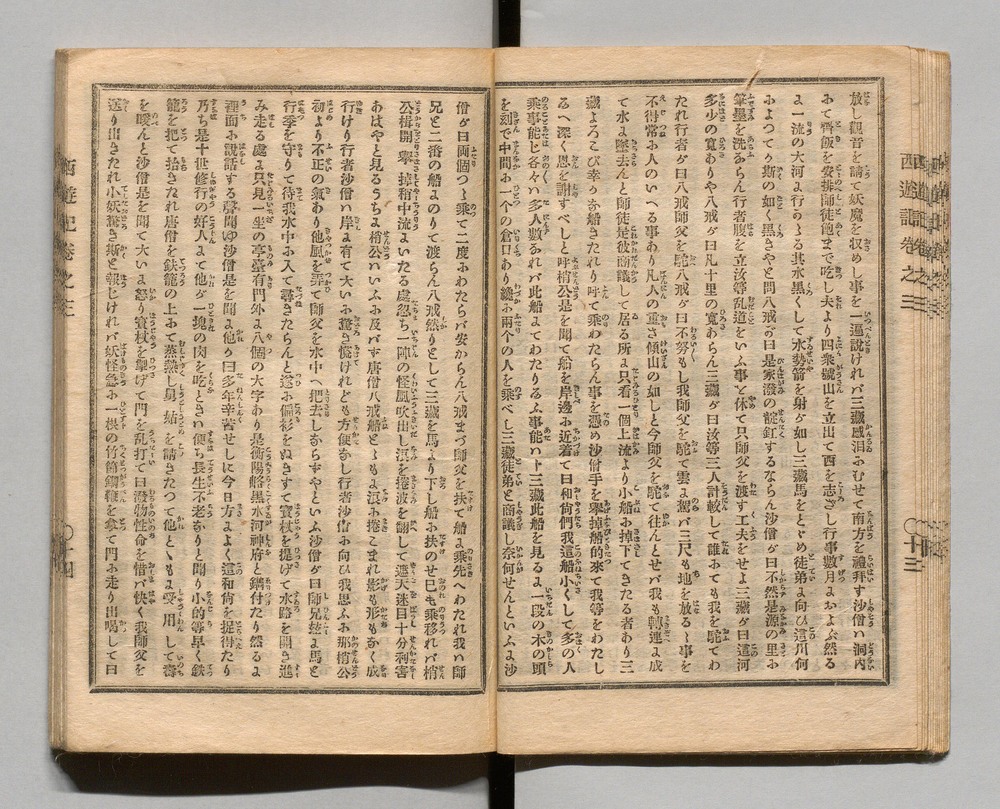 放し觀音を請て妖魔を収めし事を一遍説けれバ三藏感泪にむせて南方を禮拜す沙僧ハ洞内
にて齊飯を安排し師徒飽まで吃し夫より四衆號山を立出て西を志ざし行事數月におよぶ然る
に一流の大河に行あへる其水黒くして水勢箭を射るが如し三藏馬をとゞめ徒弟に向ひ這川何
によつてか斯の如く黒きやと問八戒が曰是家潑の靛釭するならん沙僧が曰不然是源の里に
筆墨を洗ふならん行者腹を立汝等乱道をいふ事を休て只師父を渡す工夫をせよ三藏が曰這河
多少の寛ありや八戒が曰凡十里の寛あらん三藏が曰汝等三人計較して誰にても我を駝てわ
たれ行者が曰八戒師父を駝八戒が曰不努もし我師父を駝て雲に駕バ三尺も地を放るゝ事を
不得常に人のいへる事あり凡人の重き傾山の如しと今師父を駝て往んとせバ我も轉連に成
て水に墜去んと師徒是彼商議して居る所に只看一個上流より小船に掉下てきたる者あり三
藏よろこび幸ひ船きたれり呼て乘わたらん事を憑め沙僧手を擧掉船的來て我等をわたし
るへ深く恩を謝すべしと呼梢公是を聞て船を岸邊に近着て曰和尙們我這船小くして多の人
乘事能じ各々ハ多人數なれバ此船にてわたりなふ事能ハト三藏此船を見るに一段の木の頭
を刻で中間に一個の倉口あり纔に兩個の人を乘べし三藏徒弟と商議し奈何せんといふに沙
僧が曰両個づゝ乘て二度にわたらバ安からん八戒まづ師父を扶て船に乘先へわたれ我ハ師
兄と二番の船にのりて渡らん八戒然りとして三藏を馬より下し船に扶のせ巳も乘移れバ梢
公楫開擧操稍中流にいたる處忽ち一陣の怪風吹出し浪を捲波を翻して遮天迷目十分利害
あはやと見るうちに梢公ハいふに及バず唐僧八戒船ともに浪に捲こまれ影も形もなく成
行けり行者沙僧ハ岸に有て大いに驚き慌けれども方便なし行者沙僧に向ひ我思ふに那梢公
初より不正の氣あり他風を弄て師父を水中へ把去しならずやといふ沙僧が曰師兄玆に馬と
行李を守りて待我水中に入て尋きたらんと遂に偏衫をぬぎすて寳杖を提げて水路を開き進
み走る處に只見一坐の亭臺有門外に八個の大字あり是衡陽峪黒水河神府と鐫付たり然るに
裡面に説話する聲聞ゆ沙僧是を聞に他が曰多年辛苦せしに今日方によく這和尙を捉得たり
乃ち是十世修行の好人にて他が一塊の肉を吃ときハ便ち長生不老なりと聞り小的等早く鉄
籠を把て抬きたれ唐僧を鉄籠の上にて蒸熟し舅々を請きたつて他とゝもに受用して壽
を暖んと沙僧是を聞て大いに怒り寳杖を擧げて門を乱打て曰潑物性命を惜バ快く我師父を
送り出きたれ小妖驚き斯と報じけれバ妖怪急に一根の竹節鋼鞭を拿て門に走り出喝して曰
西遊記巻之三
〇十三
西遊記巻之三
〇十四